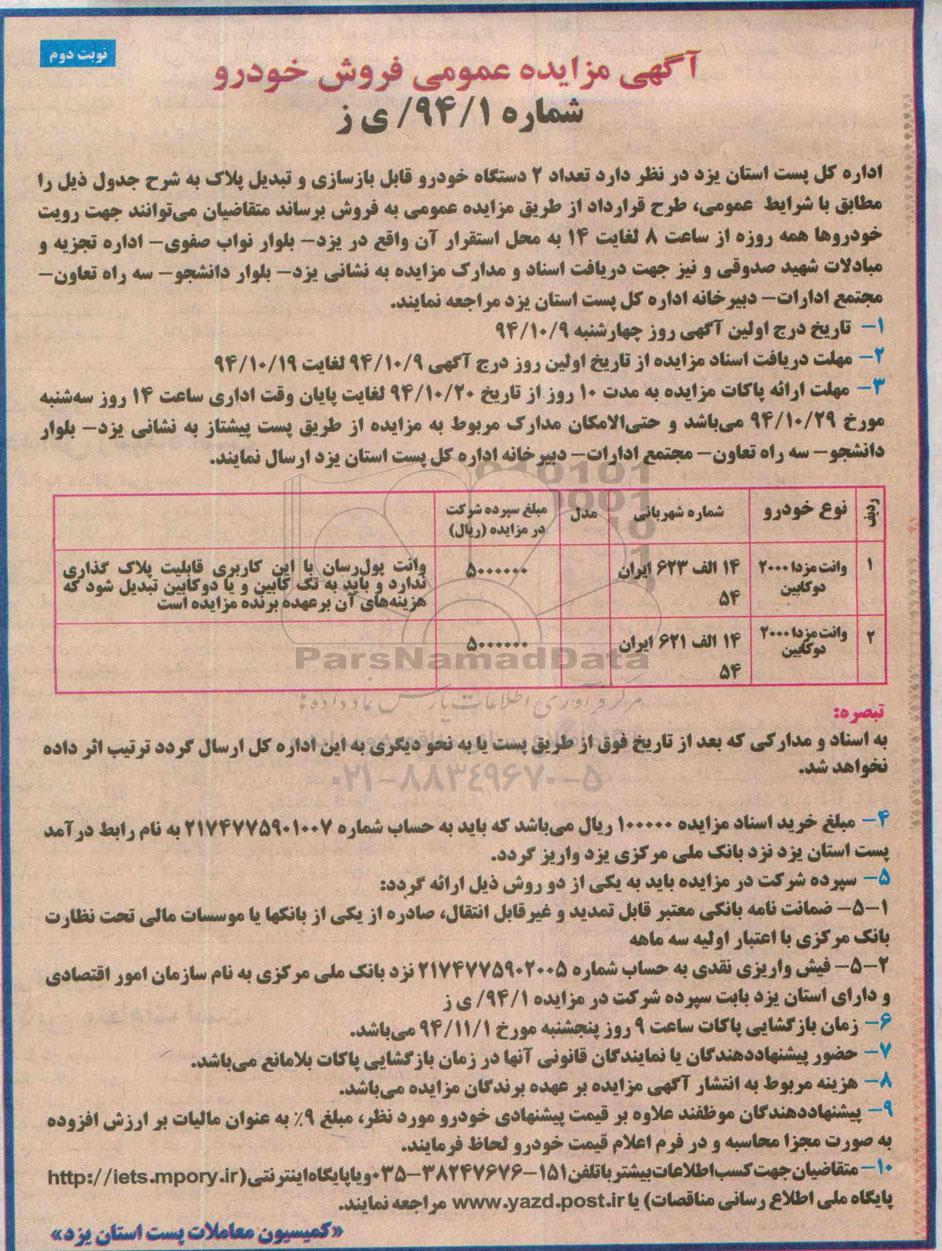 نوبت دوم
آگهی مزایده عمومی فروش خودرو
شماره ۹۴/۱/ ی ز
اداره کل پست استان یزد در نظر دارد تعداد ۲ دستگاه خودرو قابل بازسازی و تبدیل پلاک به شرح جدول ذیل را
مطابق با شرایط عمومی، طرح قرارداد از طریق مزایده عمومی به فروش برساند متقاضیان می‌توانند جهت رویت
خودروها همه روزه از ساعت ۸ لغایت ۱۴ به محل استقرار آن واقع در یزد– بلوار نواب صفوی– اداره تجزیه و
مبادلات شهید صدوقی و نیز جهت دریافت اسناد و مدارک مزایده به نشانی یزد– بلوار دانشجو– سه راه تعاون–
مجتمع ادارات– دبیرخانه اداره کل پست استان یزد مراجعه نمایند.
۱– تاریخ درج اولین آگهی روز چهارشنبه ۹۴/۱۰/۹
۲– مهلت دریافت اسناد مزایده از تاریخ اولین روز درج آگهی ۹۴/۱۰/۹ لغایت ۹۴/۱۰/۱۹
۳– مهلت ارائه پاکات مزایده به مدت ۱۰ روز از تاریخ ۹۴/۱۰/۲۰ لغایت پایان وقت اداری ساعت ۱۴ روز سه‌شنبه
مورخ ۹۴/۱۰/۲۹ می‌باشد و حتی‌الامکان مدارک مربوط به مزایده از طریق پست پیشتاز به نشانی یزد– بلوار
دانشجو– سه راه تعاون– مجتمع ادارات– دبیرخانه اداره کل پست استان یزد ارسال نمایند.
ردیف نوع خودرو شماره شهربانی مدل مبلغ سپرده شرکت
در مزایده (ریال)
۱ وانت مزدا ۲۰۰۰ ۱۴ الف ۶۲۳ ایران ۵۰۰۰۰۰۰ وانت پول‌رسان با این کاربری قابلیت پلاک گذاری
دوکابین ۵۴ ندارد و باید به تک کابین و یا دوکابین تبدیل شود که
هزینه‌های آن برعهده برنده مزایده است
۲ وانت مزدا ۲۰۰۰ ۱۴ الف ۶۲۱ ایران ۵۰۰۰۰۰۰
دوکابین ۵۴
ParsNamadData
مرکز فرآوری اطلاعات پارس نماد داده‌ها
۰۲۱-۸۸۳۴۹۶۷۰-۵
تبصره:
به اسناد و مدارکی که بعد از تاریخ فوق از طریق پست یا به نحو دیگری به این اداره کل ارسال گردد ترتیب اثر داده
نخواهد شد.
۴– مبلغ خرید اسناد مزایده ۱۰۰۰۰۰ ریال می‌باشد که باید به حساب شماره ۲۱۷۴۷۷۵۹۰۱۰۰۷ به نام رابط درآمد
پست استان یزد نزد بانک ملی مرکزی یزد واریز گردد.
۵– سپرده شرکت در مزایده باید به یکی از دو روش ذیل ارائه گردد:
۵–۱– ضمانت نامه بانکی معتبر قابل تمدید و غیرقابل انتقال، صادره از یکی از بانکها یا موسسات مالی تحت نظارت
بانک مرکزی با اعتبار اولیه سه ماهه
۵–۲– فیش واریزی نقدی به حساب شماره ۲۱۷۴۷۷۵۹۰۲۰۰۵ نزد بانک ملی مرکزی به نام سازمان امور اقتصادی
و دارای استان یزد بابت سپرده شرکت در مزایده ۹۴/۱/ ی ز
۶– زمان بازگشایی پاکات ساعت ۹ روز پنجشنبه مورخ ۹۴/۱۱/۱ می‌باشد.
۷– حضور پیشنهاددهندگان یا نمایندگان قانونی آنها در زمان بازگشایی پاکات بلامانع می‌باشد.
۸– هزینه مربوط به انتشار آگهی مزایده بر عهده برندگان مزایده می‌باشد.
۹– پیشنهاددهندگان موظفند علاوه بر قیمت پیشنهادی خودرو مورد نظر، مبلغ ۹٪ به عنوان مالیات بر ارزش افزوده
به صورت مجزا محاسبه و در فرم اعلام قیمت خودرو لحاظ فرمایند.
۱۰– متقاضیان جهت کسب اطلاعات بیشتر با تلفن ۱۵۱–۳۸۲۴۷۶۷۶–۰۳۵ و یا پایگاه اینترنتی (http://iets.mpory.ir
پایگاه ملی اطلاع رسانی مناقصات) یا www.yazd.post.ir مراجعه نمایند.
«کمیسیون معاملات پست استان یزد»